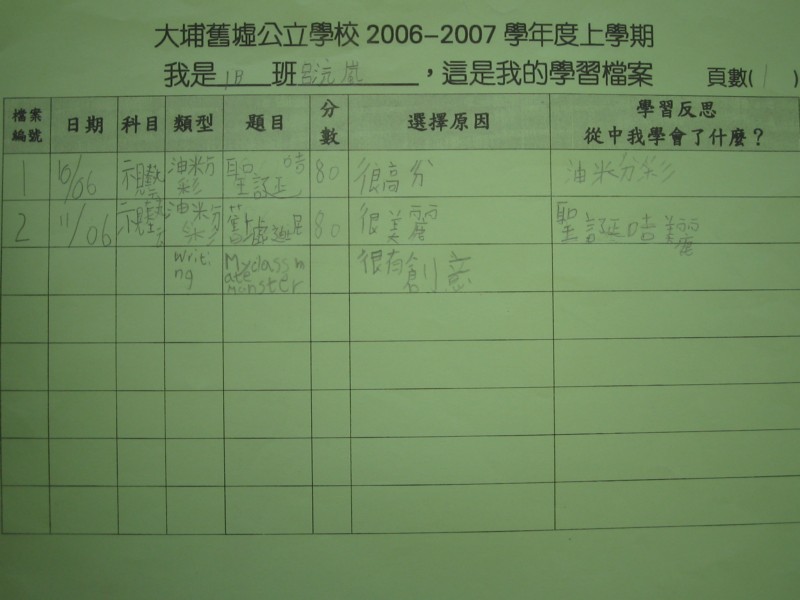 大埔舊墟公立學校 2006-2007 學年度上學期
我是 1B 班 呂沅嵐 ，這是我的學習檔案 頁數( 1 )
檔案編號 日期 科目 類型 題目 分數 選擇原因 學習反思 從中我學會了什麼？
1 10/06 視藝 油粉彩 聖誕咭 80 很高分 油粉彩
2 11/06 視藝 油粉彩 舊墟 80 很美麗 聖誕咭美麗
Writing My classmate monster 很有創意